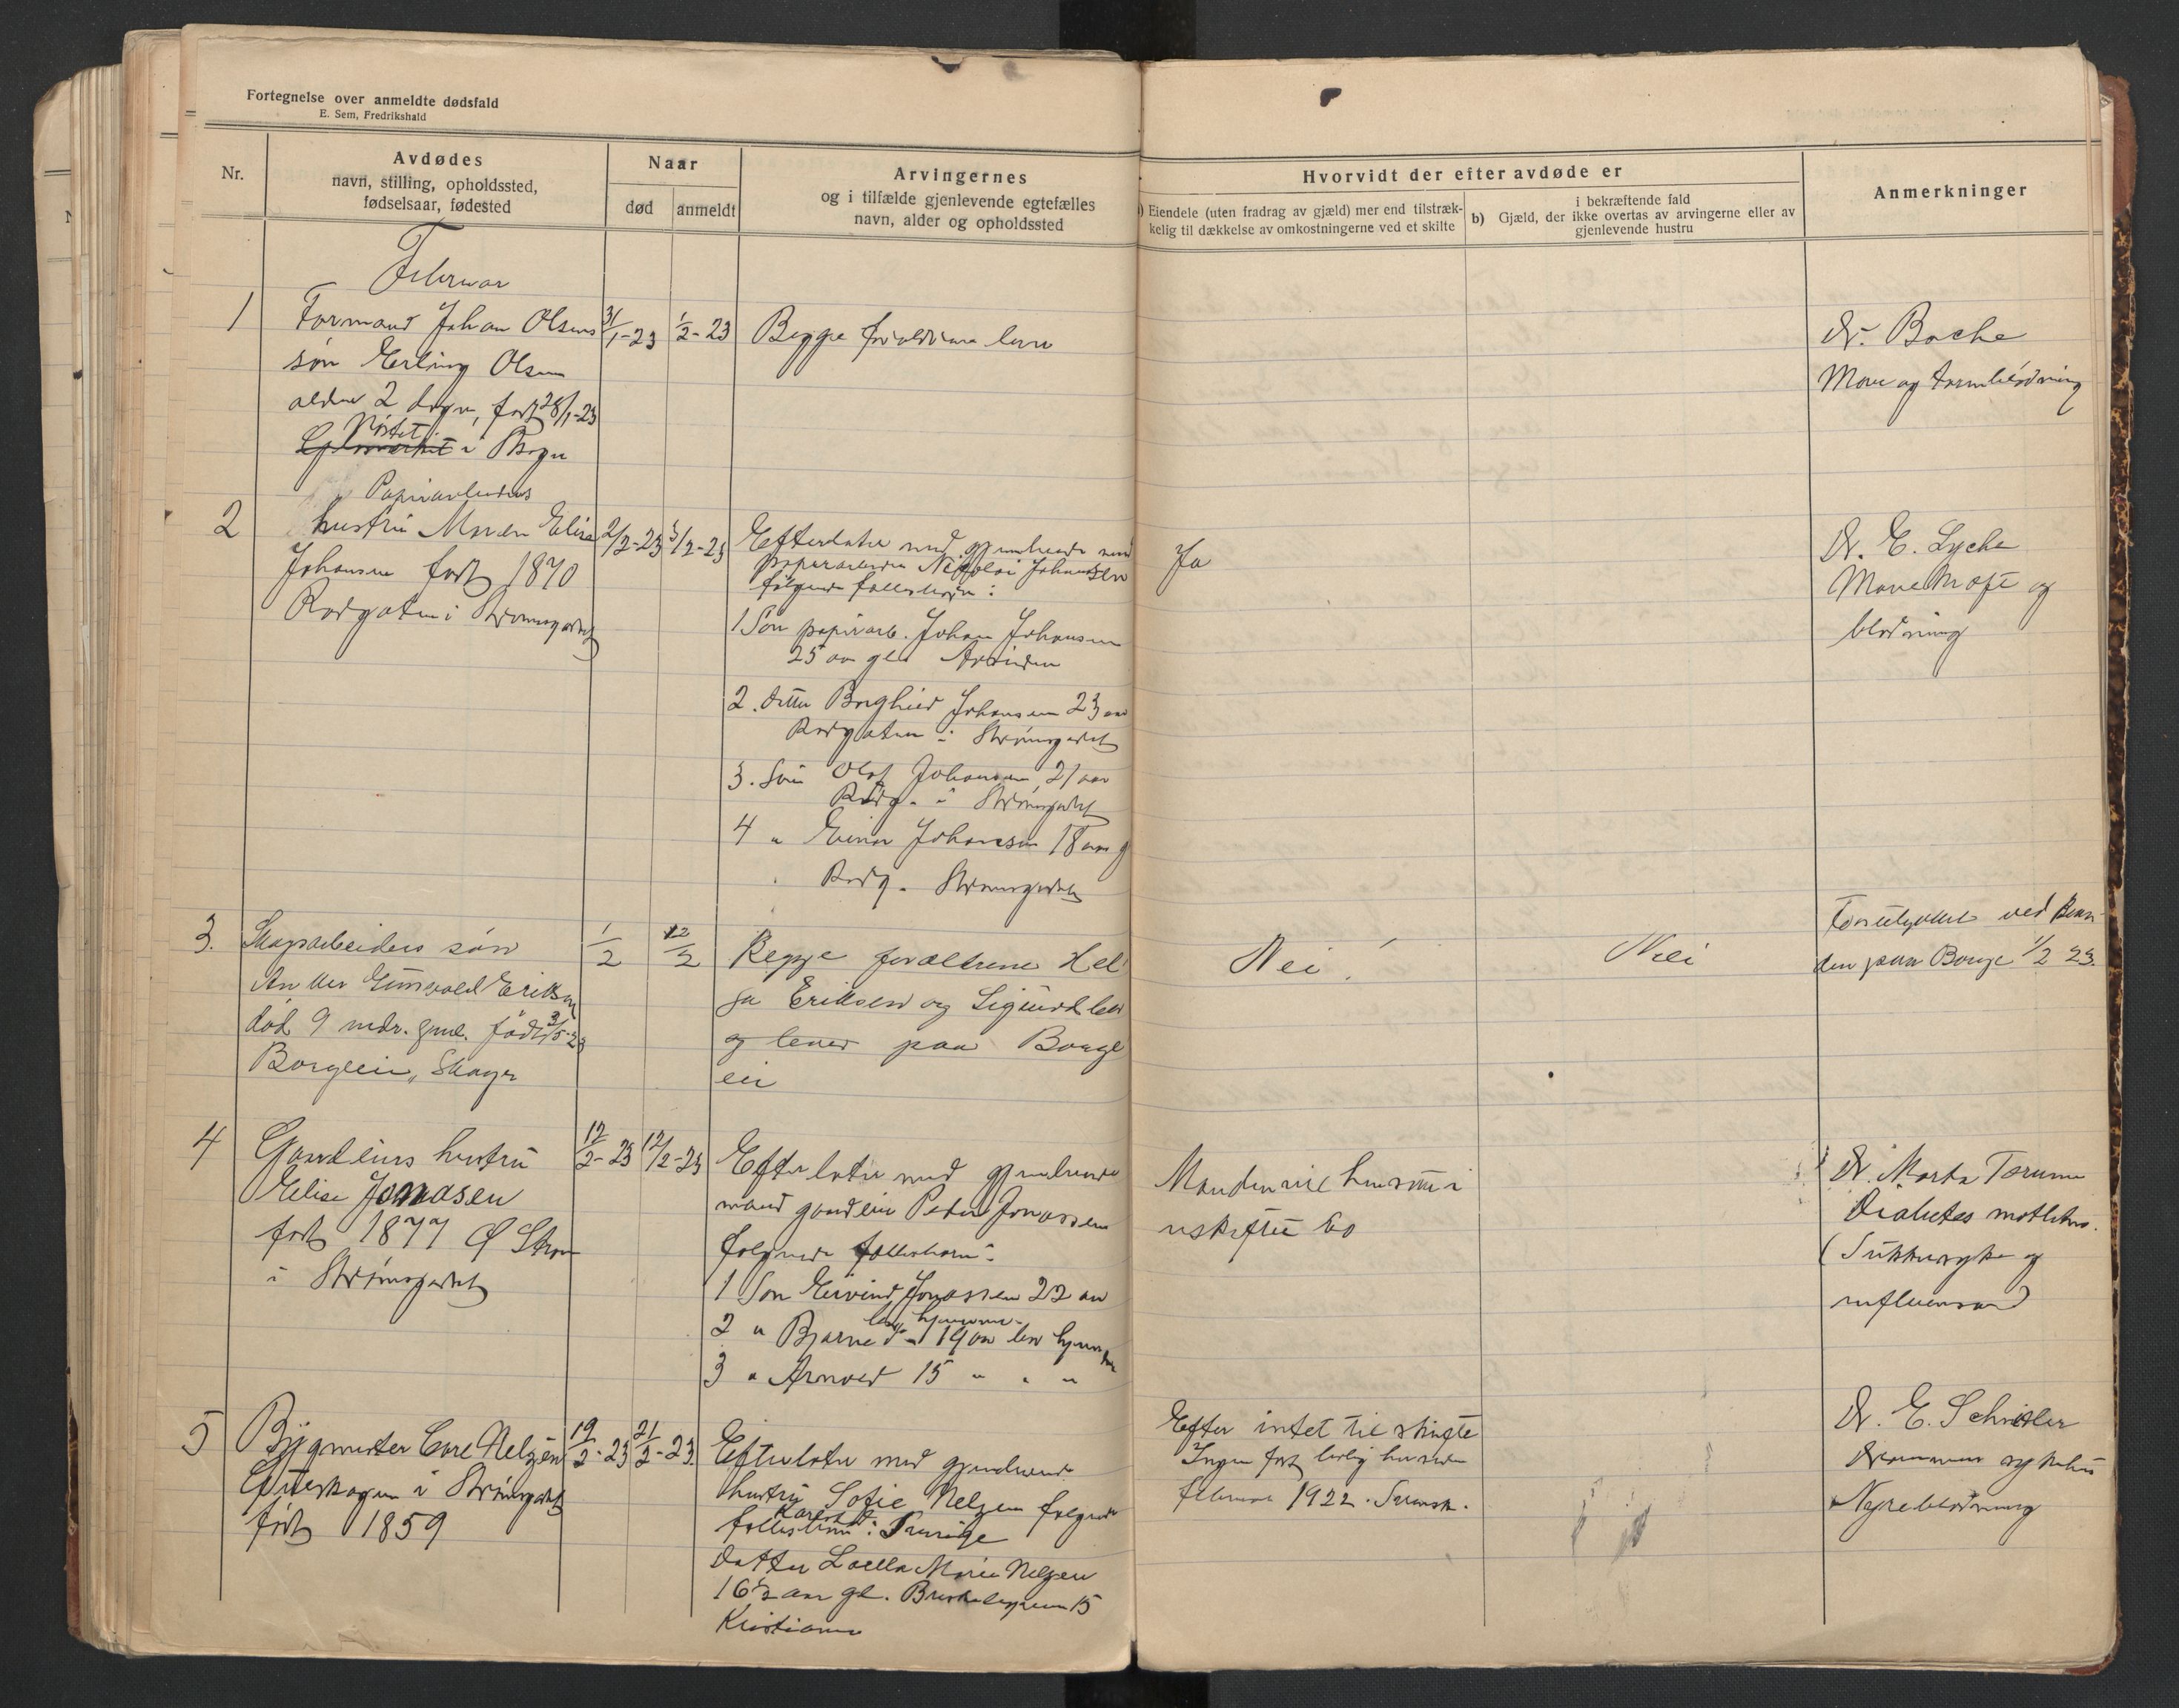 Fortegnelse over anmeldte dødsfald
E. Sem, Fredrikshald
Nr.
Avdødes
navn, stilling, opholdssted,
fødselsaar, fødested
Naar
død
anmeldt
Arvingernes
og i tilfælde gjenlevende egtefælles
navn, alder og opholdssted
Hvorvidt der efter avdøde er
Eiendele (uten fradrag av gjæld) mer end tilstræk-
kelig til dækkelse av omkostningerne ved et skifte
b) i bekræftende fald
Gjæld, der ikke overtas av arvingerne eller av
gjenlevende hustru
Anmerkninger
Februar
1
Formand Johan Olsens
søn Erling Olsen
alder 2 døgn, født 28/1-23
Nøstet i
31/1-23
1/2-23
Begge forældrene lever
Dr. Bache
Mave og tarmblødning
2
Papirarbeiders
hustru Maren Elise
Johansen født 1870
i Strømsgodset
2/2-23
3/2-23
Efterlater med gjenlevende mand
papirarbeider Nikolai Johansen
følgende fællesbørn:
1 Søn papirarb. Johan Johansen
25 aar gl.
2. Datter Borghild Johansen 23 aar
i Strømsgodset
3. Søn Olaf Johansen 21 aar
i Strømsgodset
4 " Einar Johansen 18 aar g
Strømsgodset
Ja
Dr. E. Lyche
Mavekræft og
blødning
3.
Skogsarbeiders søn
Gunvald Eriksen
død 9 mdr. gml. født
Borgeeie, Skoger
1/2
12/2
Begge forældrene Hel
ga Eriksen og Sigurd lev
og lever paa Borge
eie
Nei!
Nei
ved
den paa Borge 1/2 23.
4
Gaardeiers hustru
Elise Jonasen
født 1877 Ø Strøm
i Strømsgodset
12/2-23
12/2-23
Efterlater med gjenlevende
mand gaardeier Peder Jonassen
følgende fællesbørn:
1 Søn Eivind Jonassen 22 aar
lev. hjemme
2 " Bjarne do 19 aar lev hjemme
3 " Arnold 15 " " "
Manden vil hensitte i
uskiftet bo
Dr. Marta Torum
Diabetes
(Sukkersyke og
influensa)
5
Bygmester Carl Nelzén
i Strømsgodset
født 1859
19/2-23
21/2-23
Efterlater med gjenlevende
hustru Sofie Nelzen følgende
fællesbarn:
Datter Laella Marie Nelzen
16½ aar gl. 15
Kristiania
Efter intet til skifte
Ingen fast bolig her siden
februar 1922. Svensk.
Dr. E. Schiøtler
Drammens sykehus
Nyreblødning